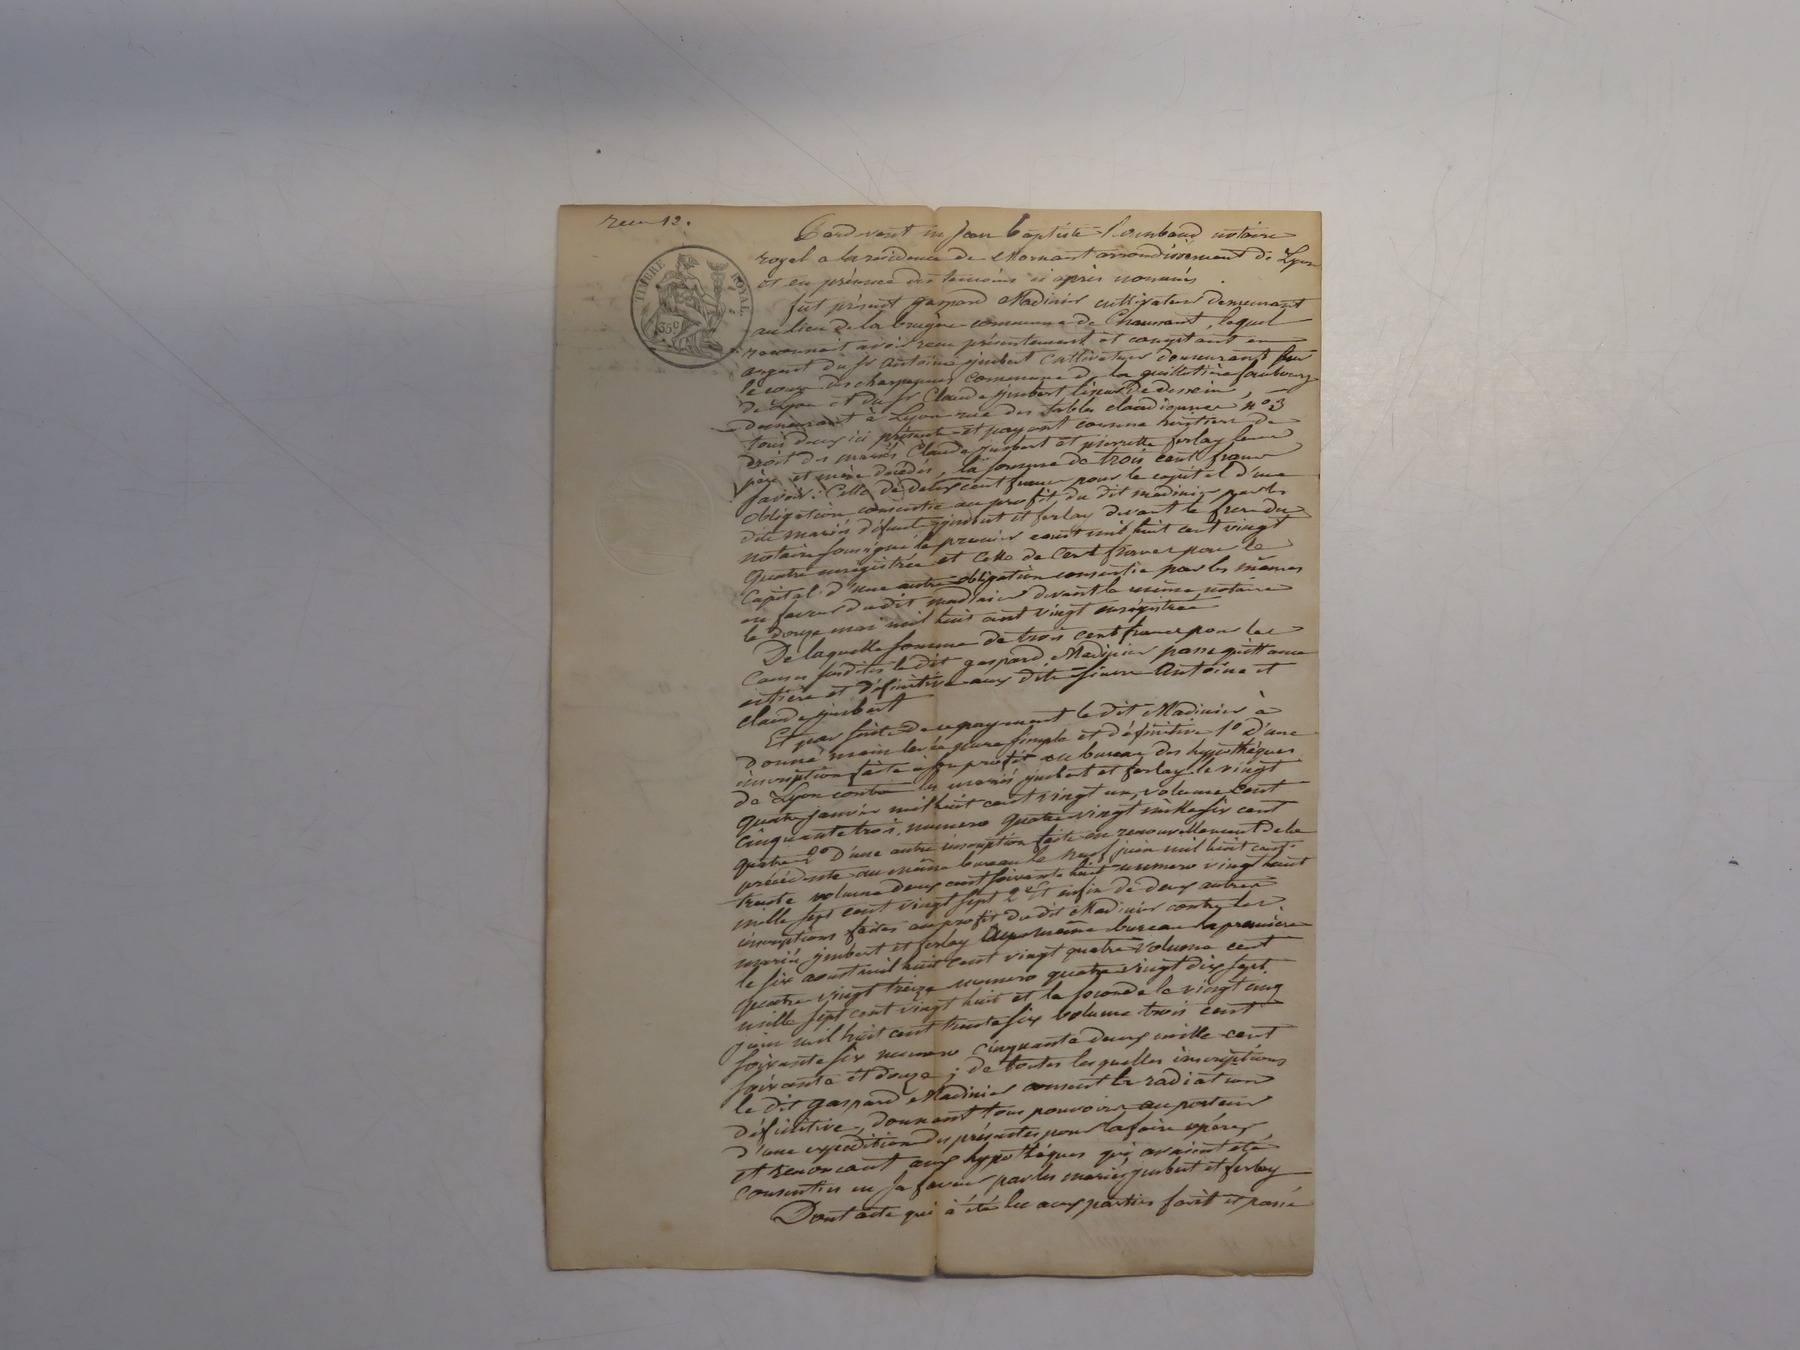 TIMBRE ROYAL
35 c
Pardvant me Jean Baptiste notaire
royal a la residence de Mornant arrondissement de Lyon
et en présence des temoins ci après nommés
fut présent gaspard Madinier cultivateur demeurant
au lieu de la bruyère commune de Chaussant, lequel
reconnait avoir recu présentement et comptant en
argent du sr antoine jimbert cultivateur demeurant sur
le cours des charpennes commune de la guillotière faubourg
de Lyon et du sr Claude jimbert liseur de dessein,
demeurant à Lyon rue des tables claudiennes n° 3
tous deux ici présents et payant comme heritiers de
droit des mariés Claude jimbert et pierrette ferlay leurs
père et mère décédés, la somme de trois cent francs
savoir : Celle de deux cent francs pour le capital d'une
obligation consentie au profit du dit madinier par les
dits mariés défunts jimbert et ferlay devant le frere du
notaire soussigné le premier aoust mil huit cent vingt
quatre enregistrée et celle de Cent francs pour le
capital d'une autre obligation consentie par les mêmes
en faveur du dit madinier devant le même notaire
le douze mai mil huit cent vingt enregistrée
De laquelle somme de trois cent francs pour les
causes susdites le dit gaspard Madinier passe quittance
entière et définitive aux dits sieurs Antoine et
claude jimbert
Et par suite de ce payement le dit Madinier à
donné main levée pure simple et définitive 1° d'une
inscription faite à son profit au bureau des hypothèques
de Lyon contre les mariés jimbert et ferlay le vingt
quatre janvier mil huit cent vingt un, volume cent
cinquante trois, numero quatre vingt mille six cent
quatre 2° d'une autre inscription faite en renouvellement de la
précédente au même bureau le neuf juin mil huit cent
trente volume deux cent soixante huit numero vingt huit
mille sept cent vingt sept Et enfin de deux autres
inscriptions faites au profit du dit Madinier contre les
mariés jimbert et ferlay au même bureau la première
le six aoust mil huit cent vingt quatre volume cent
quatre vingt treize numero quatre vingt dix sept
mille sept cent vingt huit et la seconde le vingt cinq
juin mil huit cent trente six volume trois cent
soixante six numero cinquante deux mille cent
soixante et douze ; de toutes lesquelles inscriptions
le dit gaspard Madinier consent la radiation
définitive, donnant tous pouvoirs au porteur
d'une expédition des présentes pour la faire opérer
et renoncant aux hypothèques qui avaient été
consenties en sa faveur par les mariés jimbert et ferlay
Dont acte qui à été lu aux parties fait et passé